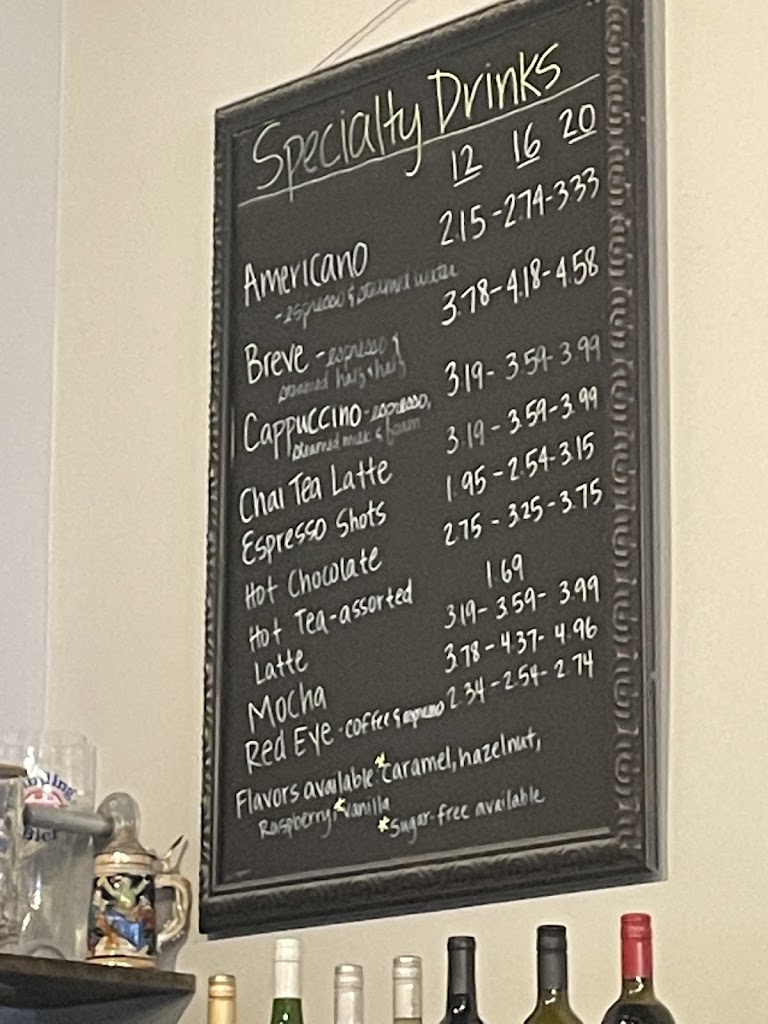 Specialty Drinks
12 16 20
Americano 2.15-2.74-3.33
-espresso & steamed water
Breve -espresso & 3.78-4.18-4.58
steamed half & half
Cappuccino-espresso, 3.19-3.59-3.99
steamed milk & foam
Chai Tea Latte 3.19-3.59-3.99
Espresso Shots 1.95-2.54-3.15
Hot Chocolate 2.75-3.25-3.75
Hot Tea-assorted 1.69
Latte 3.19-3.59-3.99
Mocha 3.78-4.37-4.96
Red Eye-coffee & espresso 2.34-2.54-2.74
Flavors available *caramel, hazelnut,
Raspberry, *vanilla
*Sugar-free available